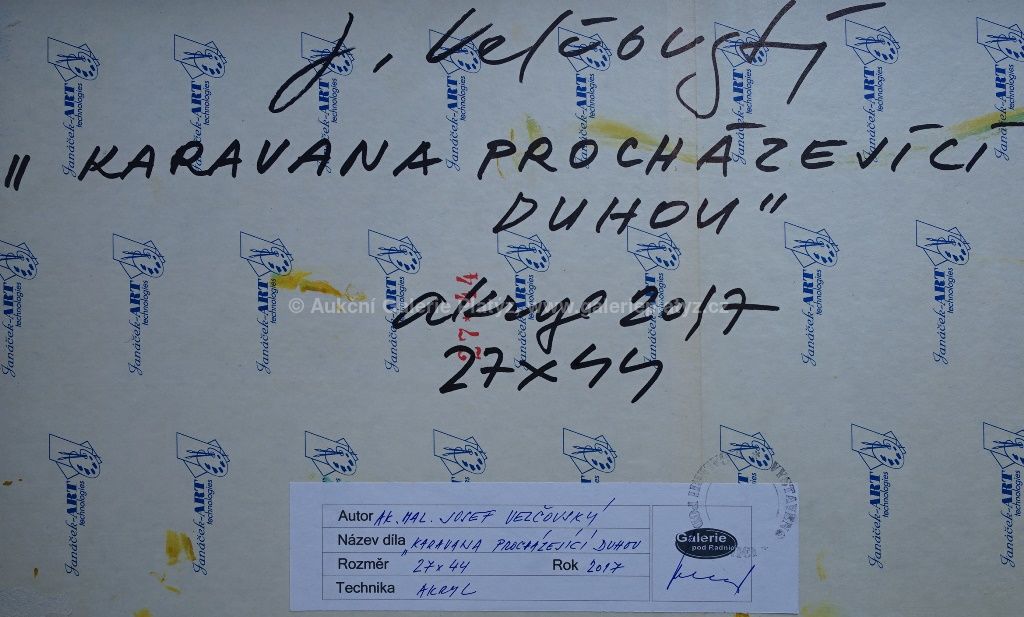 J. Velčovský
"KARAVANA PROCHÁZEJÍCÍ
DUHOU"
© Aukcní Galerie Platýz www.galerieplatyz.cz
akryl 2017
27x44
27x44
Janáček-ART technologies
Autor AK. MAL. JOSEF VELČOVSKÝ
Název díla „KARAVANA PROCHÁZEJÍCÍ DUHOU
Rozměr 27x44 Rok 2017
Technika AKRYL
Galerie
pod Radnicí